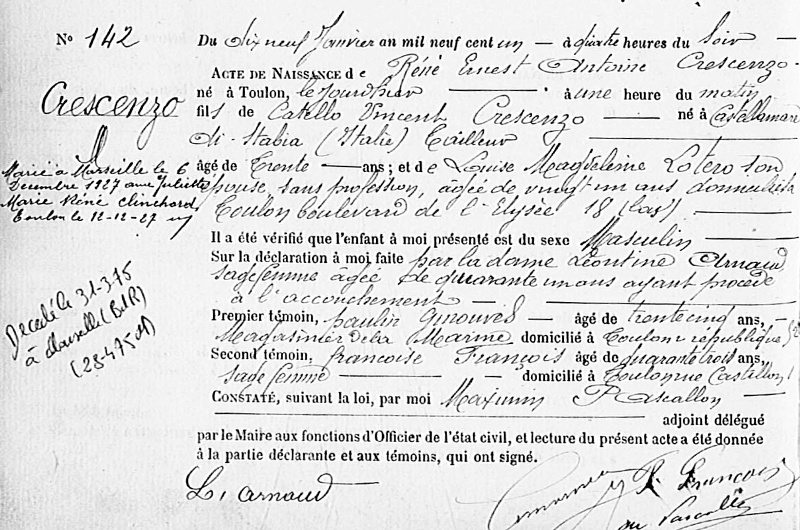 N° 142
Du dix neuf Janvier an mil neuf cent un — à quatre heures du Soir —
ACTE DE NAISSANCE de Réné Ernest Antoine Crescenzo
né à Toulon, le jourdhier — à une heure du matin
Crescenzo
fils de Catello Vincent Crescenzo — né à Castellamare
di Stabia (Italie) Tailleur
âgé de Trente — ans ; et de Louise Magdeleine Lotero son
épouse, sans profession, âgée de vingt un ans domiciliés à
Toulon boulevard de l'Elysée 18 (bas)
Marié à Marseille le 6
Décembre 1927 avec Juliette
Marie Réné Clinchard
Toulon le 12-12-27
Il a été vérifié que l'enfant à moi présenté est du sexe Masculin
Sur la déclaration à moi faite par la dame Léontine Arnaud
sage femme âgée de quarante un ans ayant procédé
à l'accouchement —
Décédé le 31-3-75
à Marseille (B.d.R)
(28-4-75
Premier témoin, paulin — âgé de trente cinq ans, —
Magasinier de la Marine domicilié à Toulon r république
Second témoin, francoise François âgé de quarante trois ans,
sage femme — domicilié à Toulon rue Castillon
CONSTATÉ, suivant la loi, par moi Maximin Pascallon
adjoint délégué
par le Maire aux fonctions d'Officier de l'état civil, et lecture du présent acte a été donnée
à la partie déclarante et aux témoins, qui ont signé.
L. arnaud
F. François